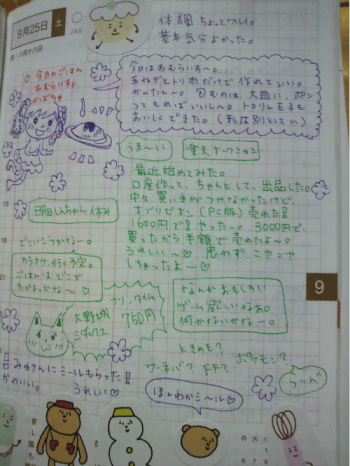 9月25日 土
旧・八月十八日
体調 ちょっとワルイ。
基本気分よかった。
今日のごはん
おむらいす。
かぼちゃ
今日はおむらいすー。
たまねぎとトリ肉だけで作れていい。
かんたん〜。包むのは、大皿に、ポン
ってもればいいし〜。トロリんも子も
おいしくできた。(私は別として)
うまーい
楽天オークション
最近始めてみた。
口座作って、ちゃんとして、出品した。
中々買い手がつかなかったけど、
オブリビオン(PC版)売れた!!
1600円で!! やったー。3000円で、
買ったから半額で売れたよ〜。
うれしい〜♡ 思わず、ニヤニヤ
しちゃったよー♡
明日しんちゃん休み
どこいこうかな〜。
カラオケ、行く予定。
ごはんは、どこで
たべよっかな〜♡
大野城
シダックス
フリータイム
750円
なんかおもしろい
ゲーム欲しいなぁ。
何かないかな〜。
ときメモ?
ワーネバ? FF?
ポケモン?
うーん
!!みわさんにミールもらった!!
かわいい。 うれしい♡
ほんわかミ〜ル♡
9